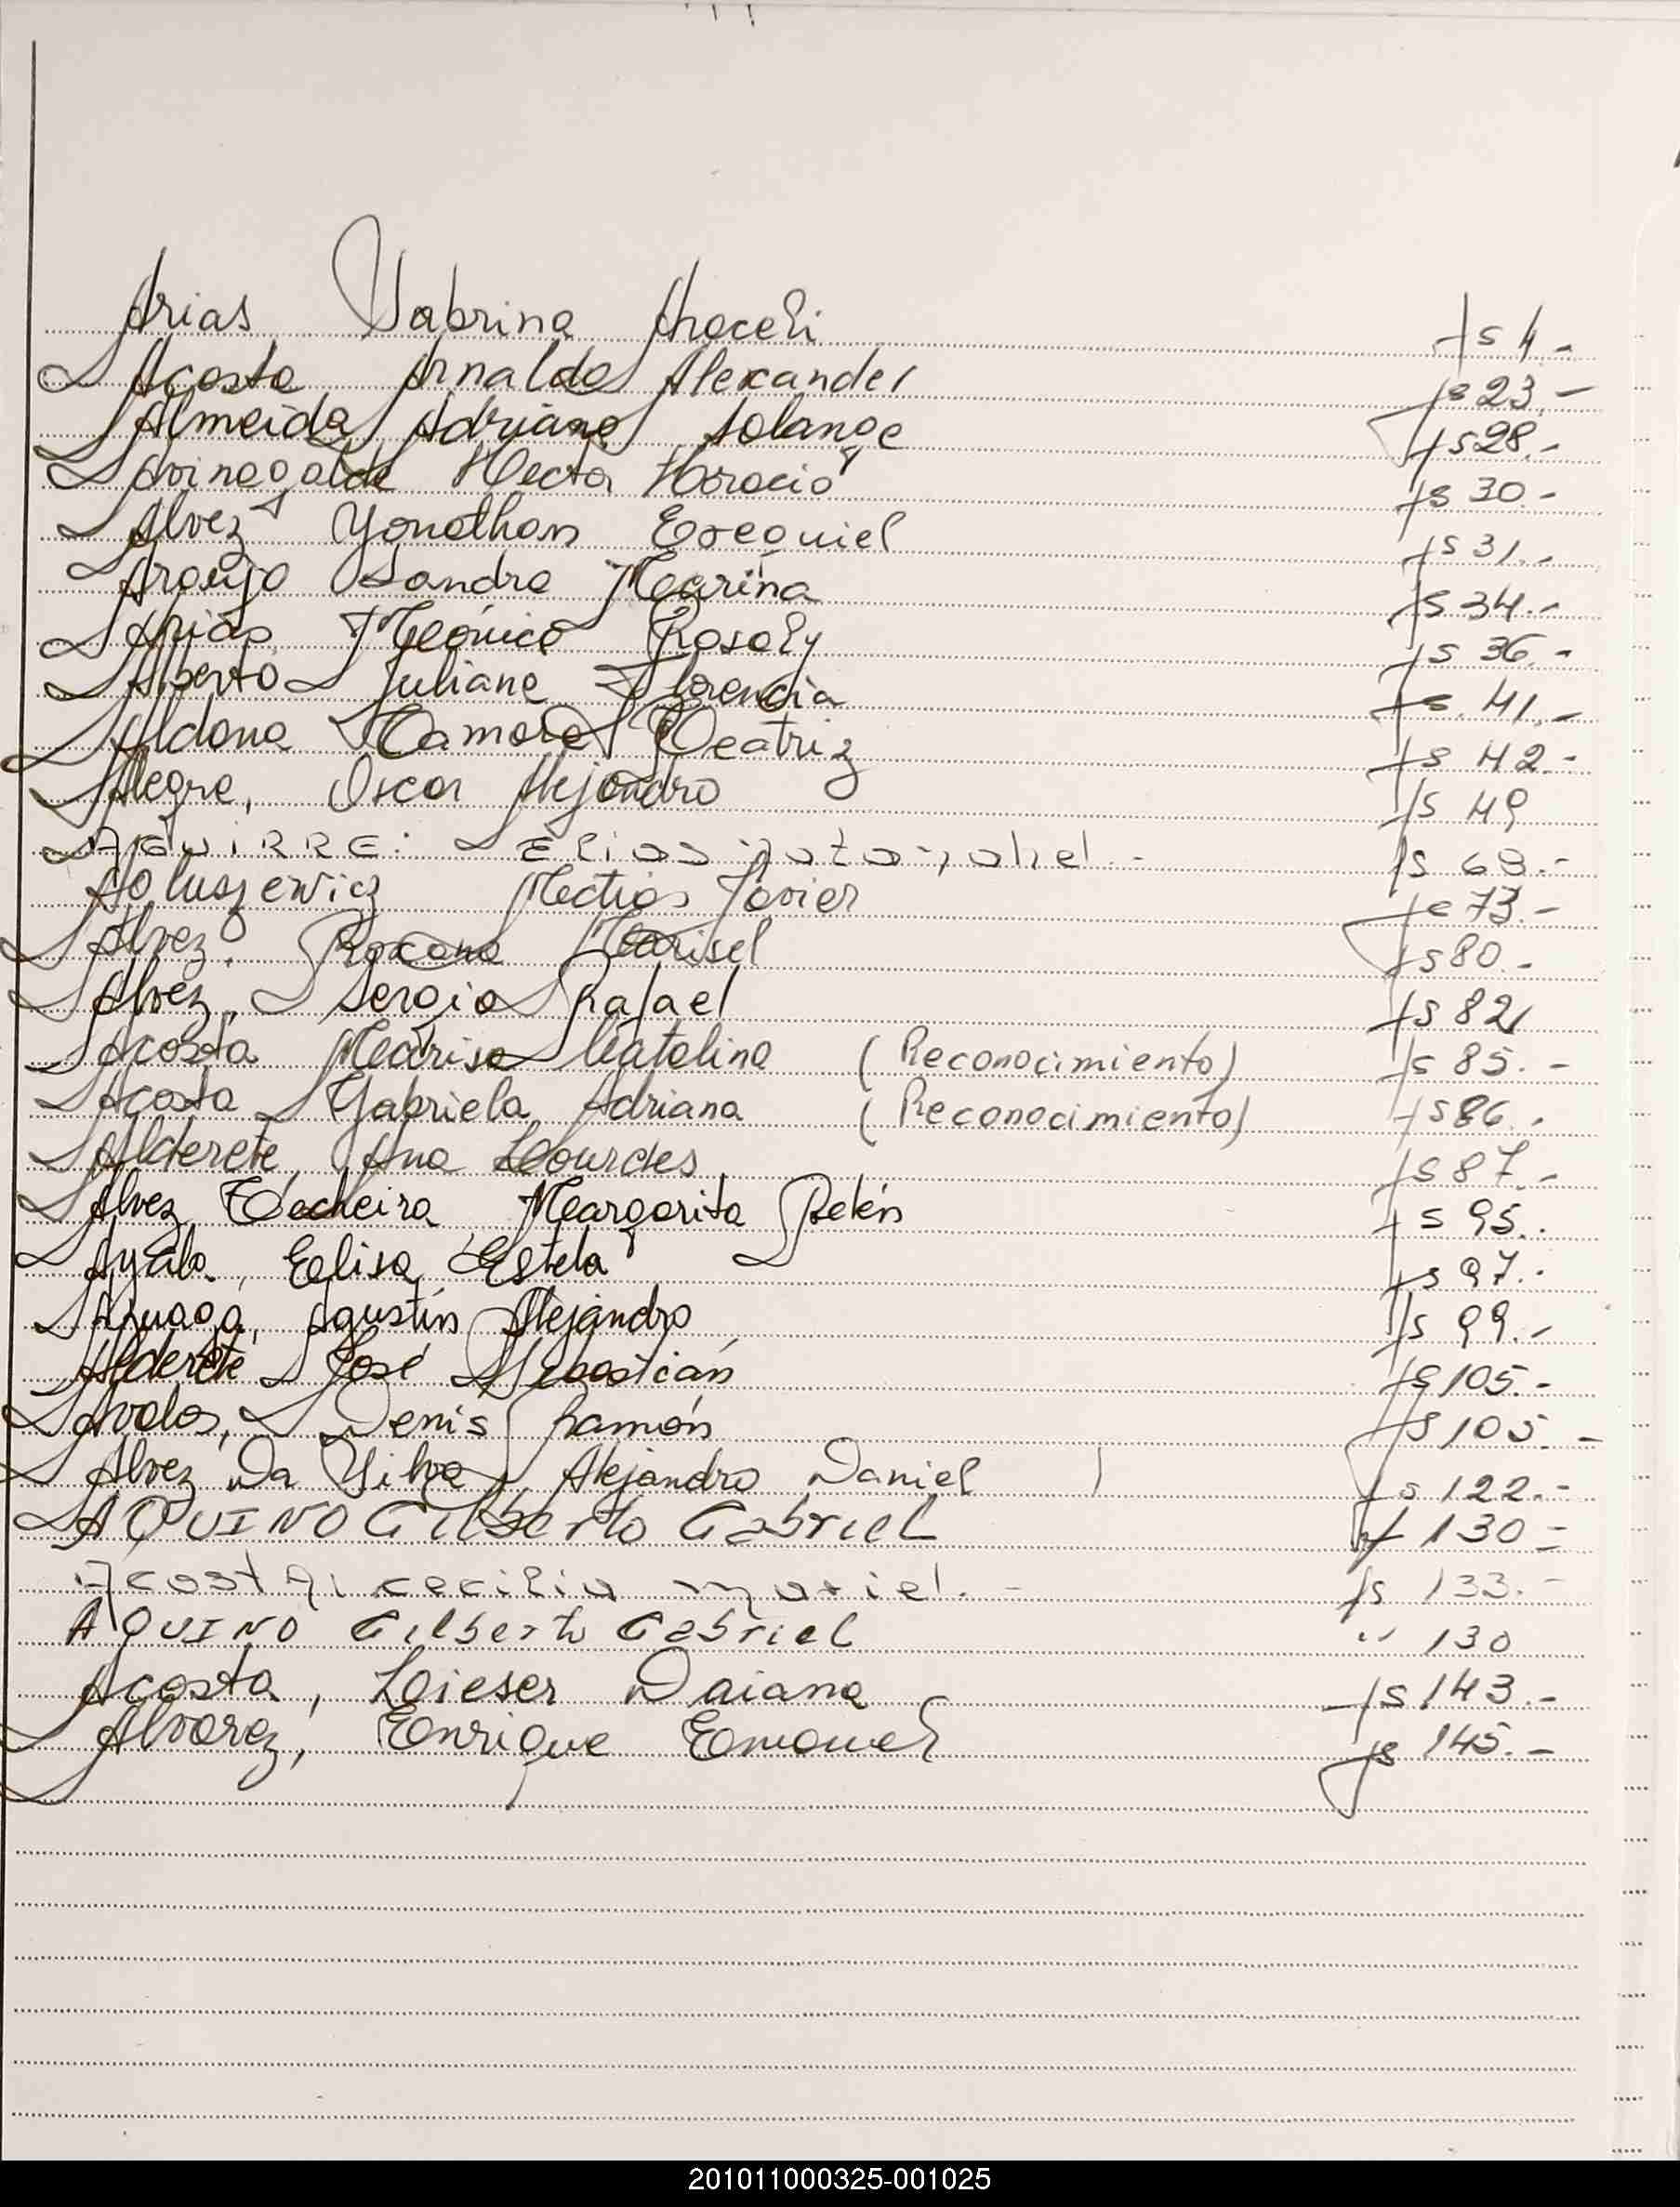 Arias Sabrina Araceli fs 4.-
Acosta Arnaldo Alexander fs 23.-
Almeida Adriana Solange fs 28.-
Hector Horacio fs 30.-
Alvez Yonathan Exequiel fs 31.-
Araujo Sandra Marina fs 34.-
Arias Mónica Rosaly fs 36.-
Alberto Juliana Florencia fs 41.-
Aldana Tamara Beatriz fs 42.-
Alegre, Oscar Alejandro fs 49
AGUIRRE: Elias natanahel.- fs 68.-
Matias Javier fs 73.-
Alvez. Roxana Marisel fs 80.-
Alvez, Sergio Rafael fs 82
Acosta Marisa Catalina (Reconocimiento) fs 85.-
Acosta Gabriela Adriana (Reconocimiento) fs 86.-
Alderete, Ana Lourdes fs 87.-
Alvez Techeira Margarita Belén fs 95.
Ayala, Elisa Estela fs 97.-
Agustín Alejandro fs 99.-
Alderete José Sebastián fs 105.-
Avalos, Denis Ramón fs 105.-
Alvez Da Silva, Alejandro Daniel fs 122.-
AQUINO Gilberto Gabriel 130=
Acosta, cecilia mariel.- fs 133.-
AQUINO Gilberto Gabriel " 130
Acosta, Loieser Daiana fs 143.-
Alvarez, Enrique Emanuel fs 145.-
201011000325-001025